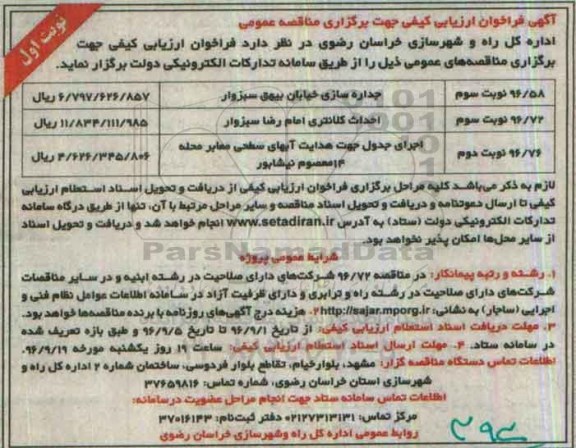 آگهی فراخوان ارزیابی کیفی جهت برگزاری مناقصه عمومی
نوبت اول
اداره کل راه و شهرسازی خراسان رضوی در نظر دارد فراخوان ارزیابی کیفی جهت
برگزاری مناقصه‌های عمومی ذیل را از طریق سامانه تدارکات الکترونیکی دولت برگزار نماید.
۹۶/۵۸ نوبت سوم جداره سازی خیابان بیهق سبزوار ۶/۷۹۷/۶۲۶/۸۵۷ ریال
۹۶/۷۲ نوبت سوم احداث کلانتری امام رضا سبزوار ۱۱/۸۳۴/۱۱۱/۹۸۵ ریال
۹۶/۷۶ نوبت دوم اجرای جدول جهت هدایت آبهای سطحی معابر محله ۴/۶۲۶/۳۴۵/۸۰۶ ریال
۱۴معصوم نیشابور
لازم به ذکر می‌باشد کلیه مراحل برگزاری فراخوان ارزیابی کیفی از دریافت و تحویل اسناد استعلام ارزیابی
کیفی تا ارسال دعوتنامه و دریافت و تحویل اسناد مناقصه و سایر مراحل مرتبط با آن، تنها از طریق درگاه سامانه
تدارکات الکترونیکی دولت (ستاد) به آدرس www.setadiran.ir انجام خواهد شد و دریافت و تحویل اسناد
از سایر محل‌ها امکان پذیر نخواهد بود.
ParsNamadData
شرایط عمومی پروژه
۱. رشته و رتبه پیمانکار: در مناقصه ۹۶/۷۲ شرکت‌های دارای صلاحیت در رشته ابنیه و در سایر مناقصات
شرکت‌های دارای صلاحیت در رشته راه و ترابری و دارای ظرفیت آزاد در سامانه اطلاعات عوامل نظام فنی و
اجرایی (ساجار) به نشانی: http://sajar.mporg.ir ۲. هزینه درج آگهی‌های روزنامه با برنده مناقصه‌ها خواهد بود.
۳. مهلت دریافت اسناد استعلام ارزیابی کیفی: از تاریخ ۹۶/۹/۱ تا تاریخ ۹۶/۹/۵ و طبق بازه تعریف شده
در سامانه ستاد. ۴. مهلت ارسال اسناد استعلام ارزیابی کیفی: ساعت ۱۹ روز یکشنبه مورخه ۹۶/۹/۱۹.
اطلاعات تماس دستگاه مناقصه گزار: مشهد، بلوارخیام، تقاطع بلوار فردوسی، ساختمان شماره ۲ اداره کل راه و
شهرسازی استان خراسان رضوی، شماره تماس: ۳۷۶۵۹۸۱۶
اطلاعات تماس سامانه ستاد جهت انجام مراحل عضویت درسامانه:
مرکز تماس: ۰۲۱۲۷۳۱۳۱۳۱ دفتر ثبت‌نام: ۳۷۰۱۶۱۴۳
روابط عمومی اداره کل راه وشهرسازی خراسان رضوی